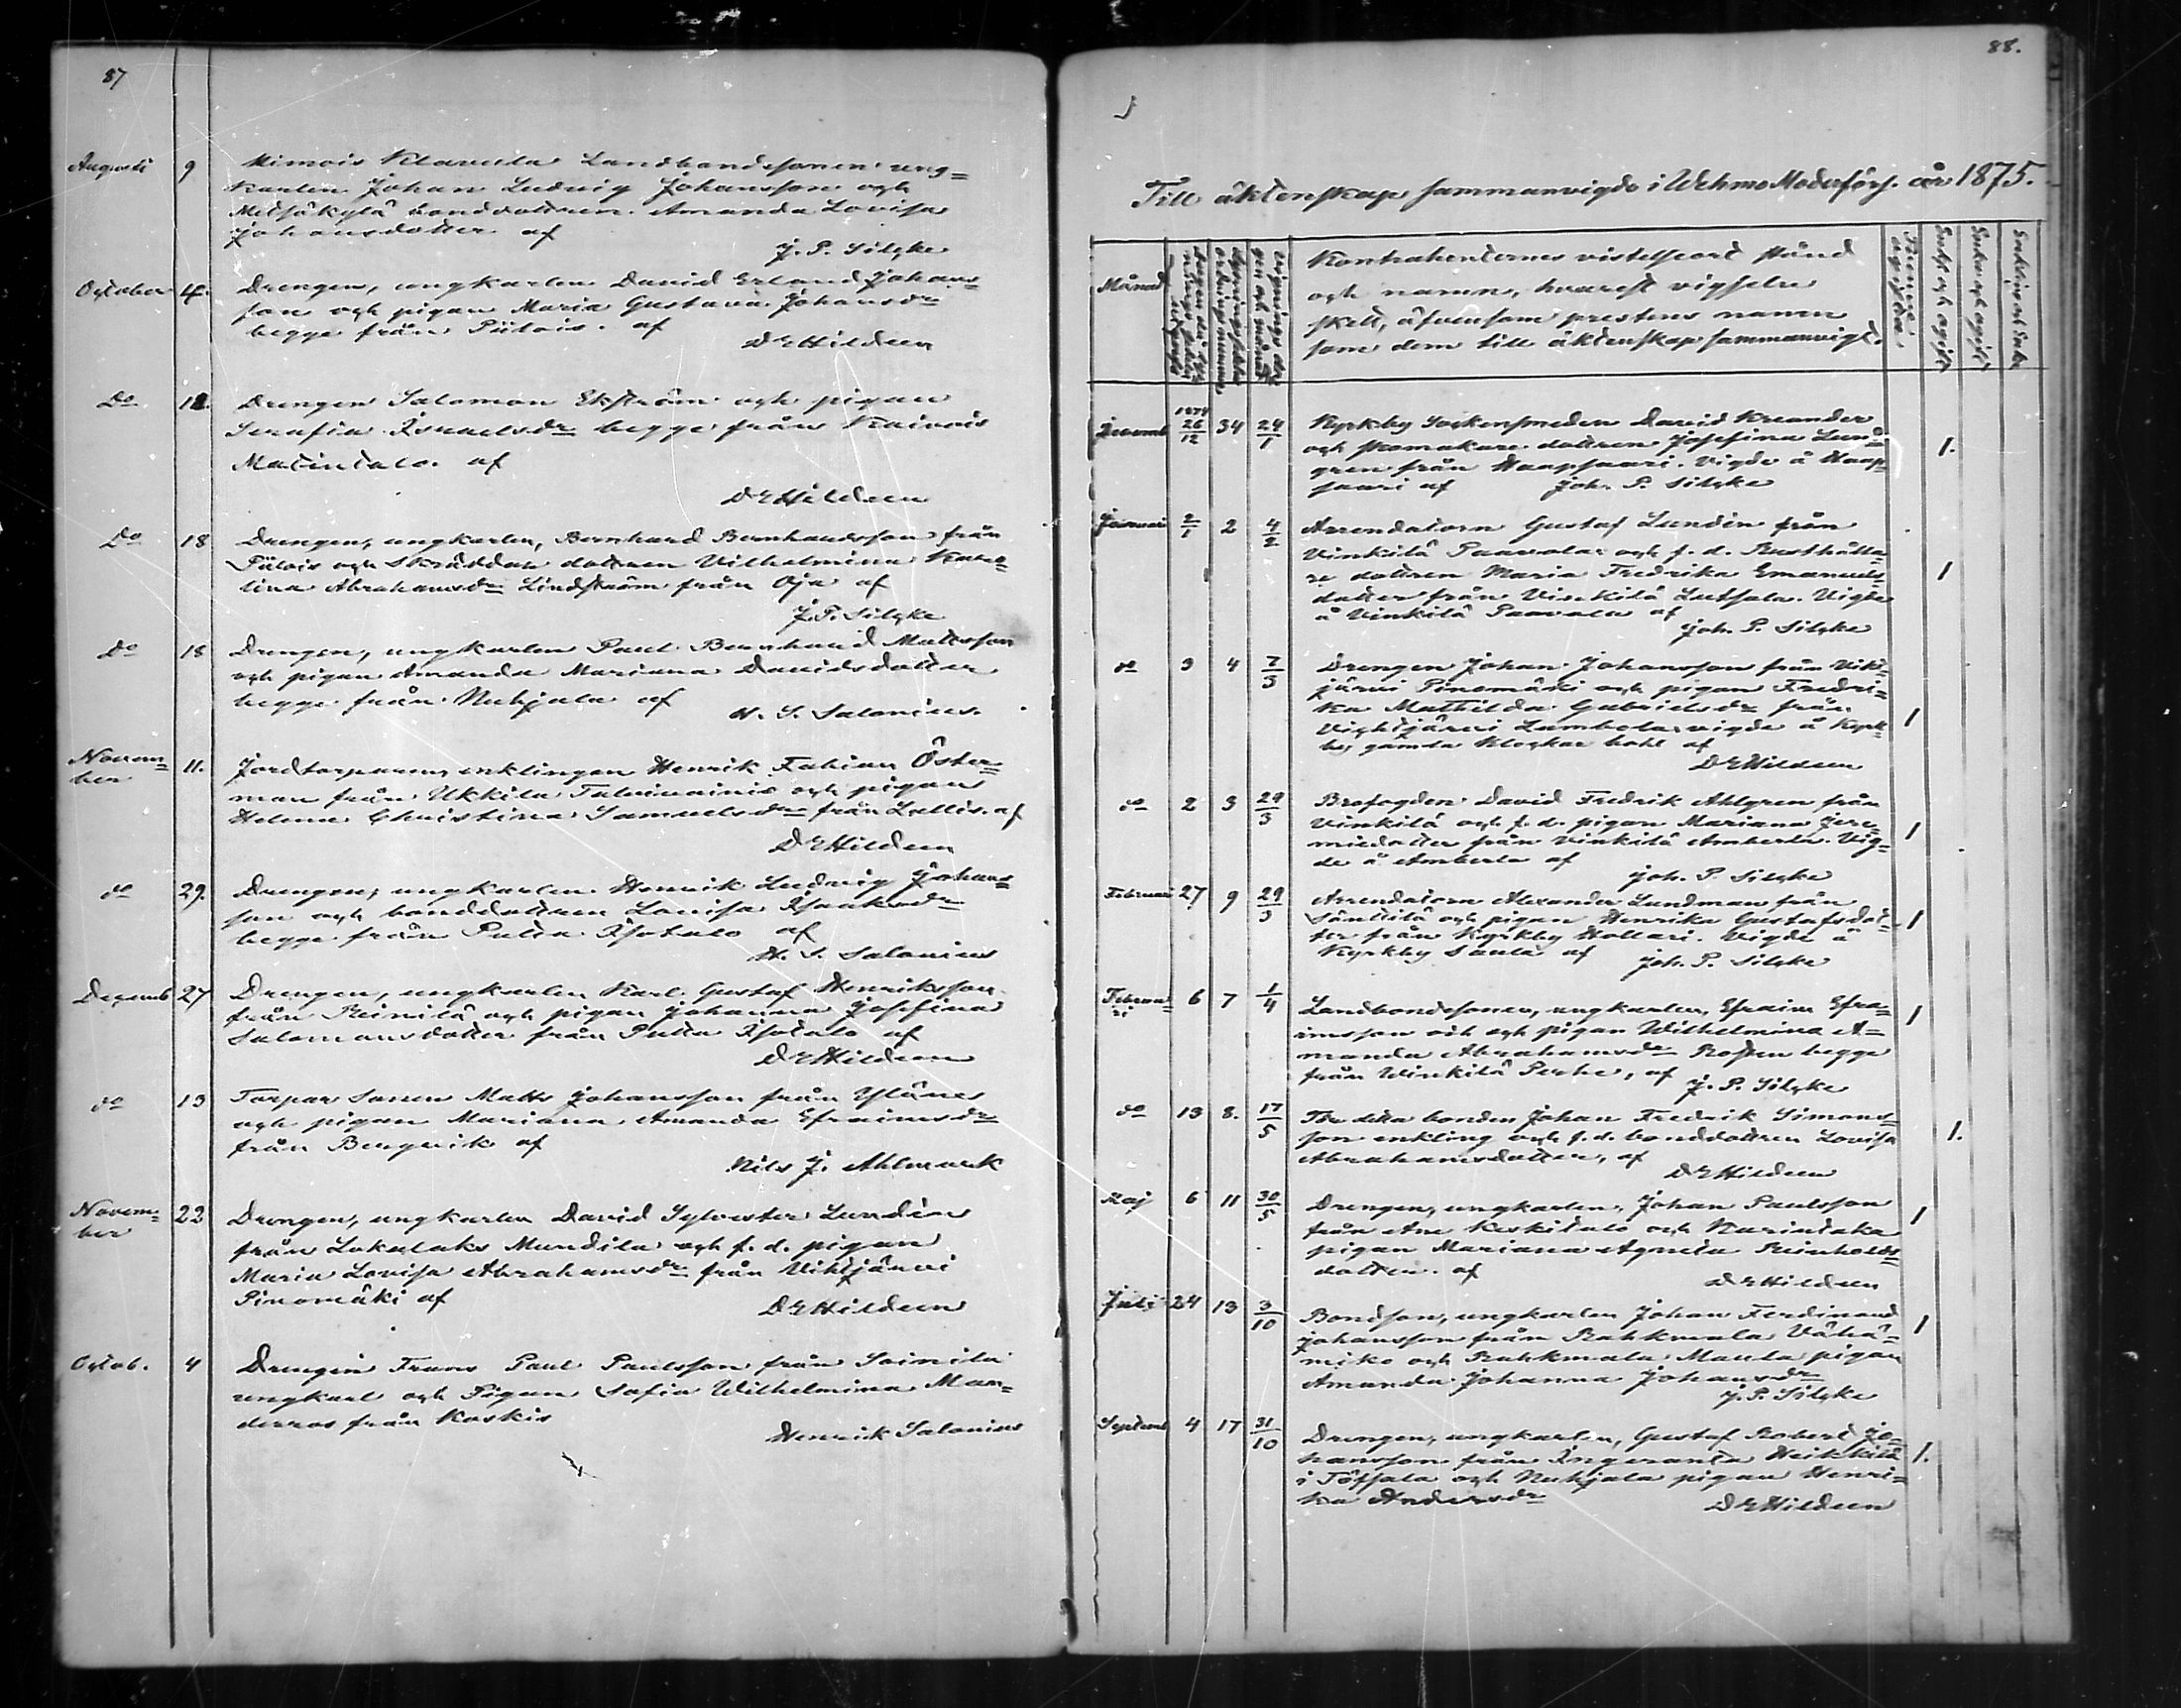 87
Augusti 9 Mimois Klavula Landbondesonen ung=
karlen Johan Ludvig Johansson och
Metsäkylä bonddottren Amanda Lovisa
Johansdotter af
J. P. Silcke
October 4. Drengen, ungkarlen David Erland Johans=
son och pigan Maria Gustava Johansdr
begge från Piilois. af
D E Hildeen
Do 12. Drengen Salomon Ekström och pigan
Serafia Israelsdr begge från Raivois
Matintalo. af
D E Hildeen
Do 18 Drengen, ungkarlen, Bernhard Bernhardsson från
och Skräddar dottren Vilhelmina Kata=
lina Abrahamsdr Lindström från Oja af
J. P. Silcke
Do 18 Drengen, ungkarlen Paul Bernhard Mattsson
och pigan Amanda Mariana Davidsdotter
begge från Nuhjala af
H. S. Salonius.
Novem=
ber 11. Jordtorparen enklingen Henrik Fabian Öster=
man från Ukkila och pigan
Helena Christina Samuelsdr från Lellis. af
D E Hildeen
do 29. Drengen, ungkarlen Henrik Ludvig Johans=
son och bonddottren Lovisa Isaksdr
begge från Putta Isotalo af
H. S. Salonius
Decemb 27 Drengen, ungkarlen Karl Gustaf Henriksson
från Reinilä och pigan Johanna Josefina
Salomonsdotter från Putta Isotalo af
D E Hildeen
do 13 Torpar Sonen Matts Johansson från Yläne
och pigan Mariana Amanda Efraimsdr
från Bergvik af
Nils J. Ahlmark
Novem=
ber 22 Drengen, ungkarlen David Sylvester Lundén
från Lokalaks Mundila och f. d. pigan
Maria Lovisa Abrahamsdr från Vihtjärvi
Pinomäki af
D E Hildeen
Octob. 4 Drengen Frans Paul Paulsson från Soinila
ungkarl och Pigan Sofia Wilhelmina Man=
derros från Koskis
Henrik Salonius
88.
Till äktenskap sammanvigde i Wehmo Moderförs. år 1875.
Månad
Kontrahenternes vistelseort stånd
och namn, hvarest vigseln
skett, äfvensom prestens namn
som dem till äktenskap sammanvigt.
Decemb 1874 26/12 34 24/1 Kyrkby Sockensmeden David Kreander
och skomakare dottren Josefina Lund=
gren från Haapsaari. Vigde å Haap=
saari af Joh. P. Silcke 1.
Januari 2/1 2 4/2 Arrendatorn Gustaf Lundén från
Vinkilä Paavola och f. d. Rusthålla=
re dottren Maria Fredrika Emanuels=
dotter från Vinkilä Lutsala. Vigde
å Vinkilä Paavola af
Joh. P. Silcke 1
do 3 4 7/3 Drengen Johan Johansson från Viht=
järvi Pinomäki och pigan Fredri=
ka Mathilda Gabrielsdr från
Vightjärvi Lambola vigde å Kyrk=
by gamla Klockar bohl af
D E Hildeen 1
do 2 3 29/3 Brofogden David Fredrik Ahlgren från
Vinkilä och f. d. pigan Mariana Jere=
miedotter från Vinkilä Amberla. Vig=
de å Amberla af
Joh. P. Silcke 1
Februari 27 9 29/3 Arrendatorn Alexander Lundman från
Santtilä och pigan Henrika Gustafsdot=
ter från Kyrkby Hollari. Vigde å
Kyrkby Santa af
Joh. P. Silcke 1
Februa=
ri 6 7 1/4 Landbondesonen, ungkarlen, Efraim Efra=
imsson och pigan Wilhelmina A=
manda Abrahamsdr Rosten begge
från Winkilä Perhe, af
J. P. Silcke 1
do 13 8. 17/5 bonden Johan Fredrik Simons=
son enkling och f. d. bonddottren Lovisa
Abrahamsdotter, af
D E Hildeen 1.
Maj 6 11 30/5 Drengen, ungkarlen, Johan Paulsson
från Ane Keskitalo och
pigan Mariana Agneta Reinholds=
dotter. af
D E Hildeen 1
Juli 24 13 3/10 Bondson, ungkarlen Johan Ferdinand
Johansson från Rahkmala Vähä=
miko och Rahkmala Maula pigan
Amanda Johanna Johansdr
J. P. Silcke 1
Septemb 4 17 31/10 Drengen, ungkarlen, Gustaf Robert Jo=
hansson från Ingeranta Heikkilä
i Töfsala och Nuhjala pigan Henri=
ka Andersdr
D E Hildeen 1.